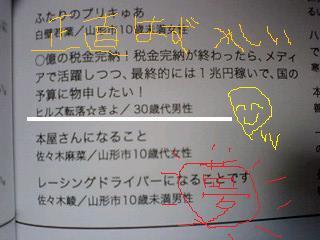 ふたりのプリキゅあ
白壁 菜／山形市10歳未満女性
正直はずかしい
○億の税金完納！税金完納が終わったら、メディ
アで活躍しつつ、最終的には１兆円稼いで、国の
予算に物申したい！
ヒルズ転落☆きよ／30歳代男性
本屋さんになること
佐々木麻菜／山形市10歳代女性
レーシングドライバーになることです
佐々木崚／山形市10歳未満男性
夢